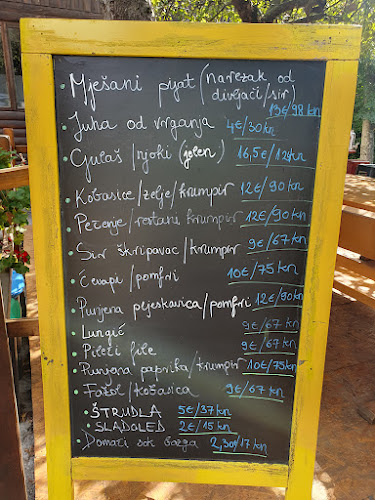 • Mješani pijat (narezak od
divljači/sir)
13€/98 kn
• Juha od vrganja 4€/30 kn
• Gulaš/njoki (jelen) 16,5€/125kn
• Kobasice/zelje/krumpir 12€/90 kn
• Pečenje/restani krumpir 12€/90kn
• Sir škripavac/krumpir 9€/67 kn
• Čevapi/pomfri 10€/75 kn
• Punjena pljeskavica/pomfri 12€/90kn
• Lungić 9€/67 kn
• Pileći file 9€/67 kn
• Punjena paprika/krumpir 10€/75kn
• Fažol/kobasica 9€/67 kn
• ŠTRUDLA 5€/37 kn
• SLADOLED 2€/15 kn
• Domaći sok bazga 2,30/17 kn